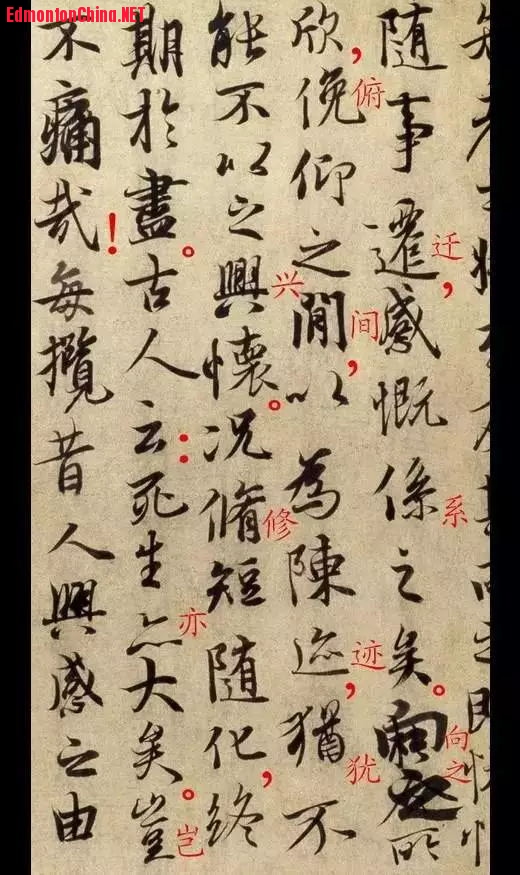 EdmontonChina.NET
隨事遷,感慨係之矣。向之所
迁
系
向之
欣,俛仰之間,以為陳迹,猶不
俯
间
迹
犹
能不以之興懷。況脩短隨化,終
兴
修
期於盡。古人云:死生亦大矣。豈
亦
岂
不痛哉!每攬昔人興感之由